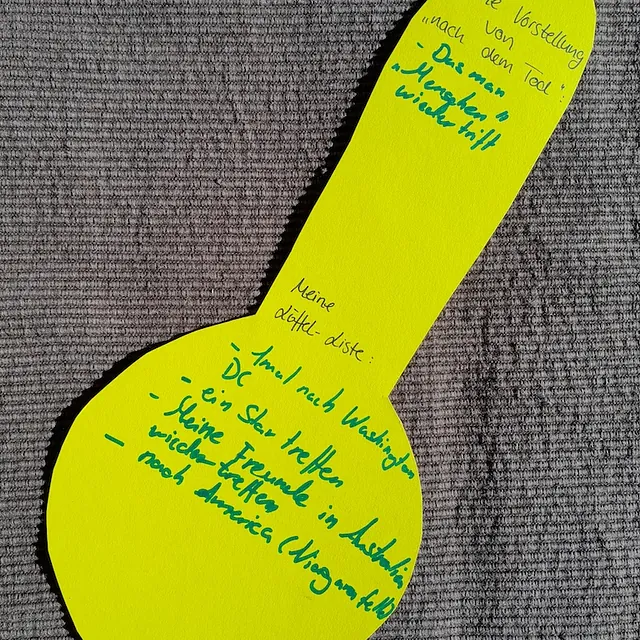 ne Vorstellung
von
„nach dem Tod":
- Das man
„Menschen"
wieder trifft
Meine
Löffel-Liste:
- 1mal nach Washington
DC
- ein Star treffen
- Meine Freunde in Australien
wieder treffen
- nach America (Niagarafälle)